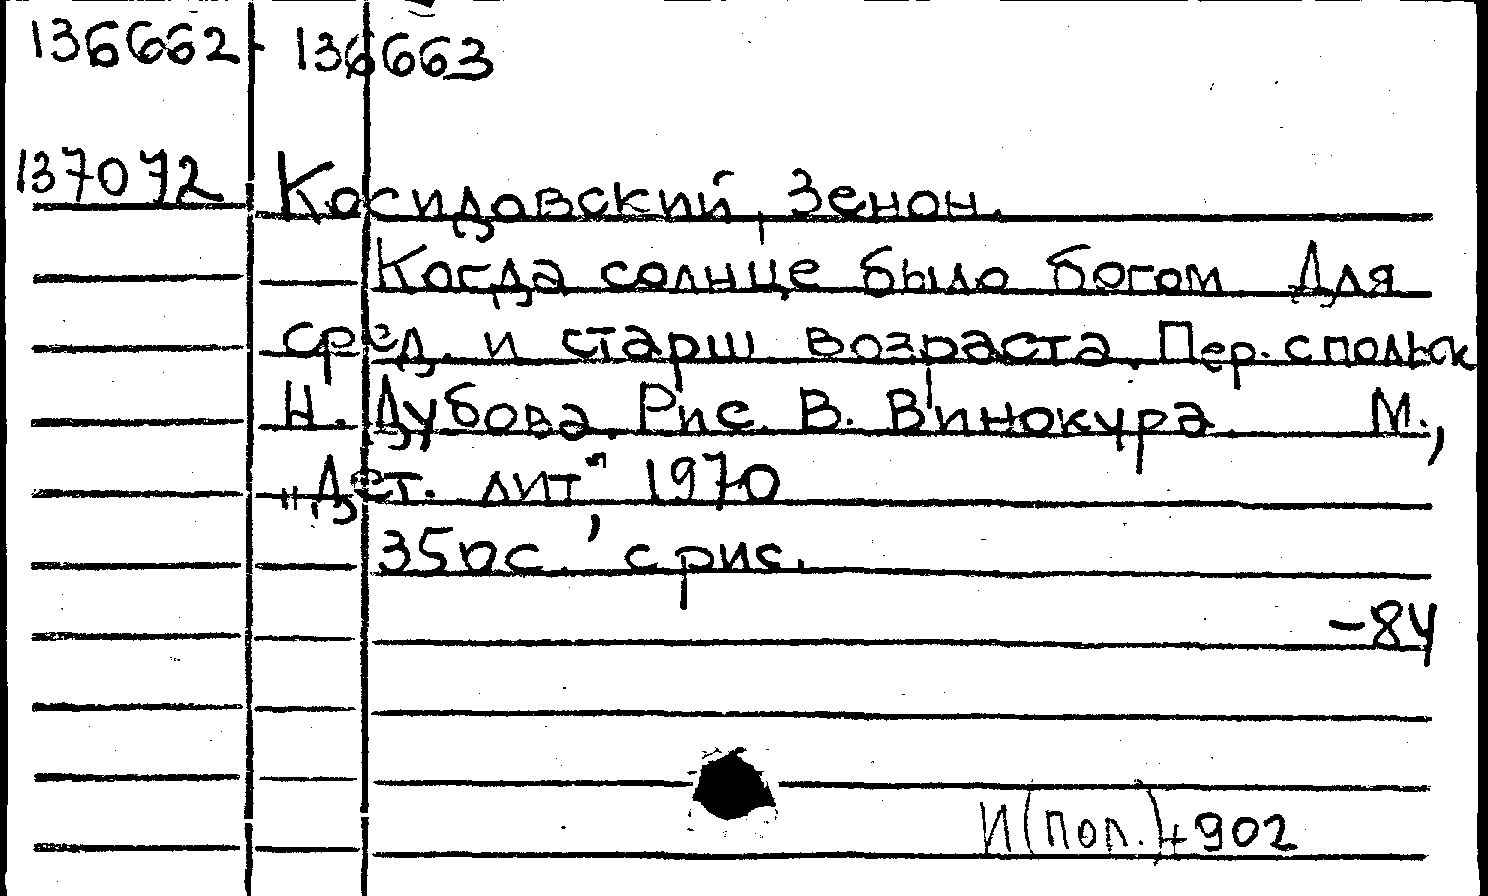 136662 - 136663
137072 Косидовский, Зенон.
Когда солнце было богом. Для
сред. и старш возраста. Пер. с польск
Н. Дубова. Рис. В. Винокура. М.,
„Дет. лит", 1970
350с., с рис.
-84
И(пол.)+902